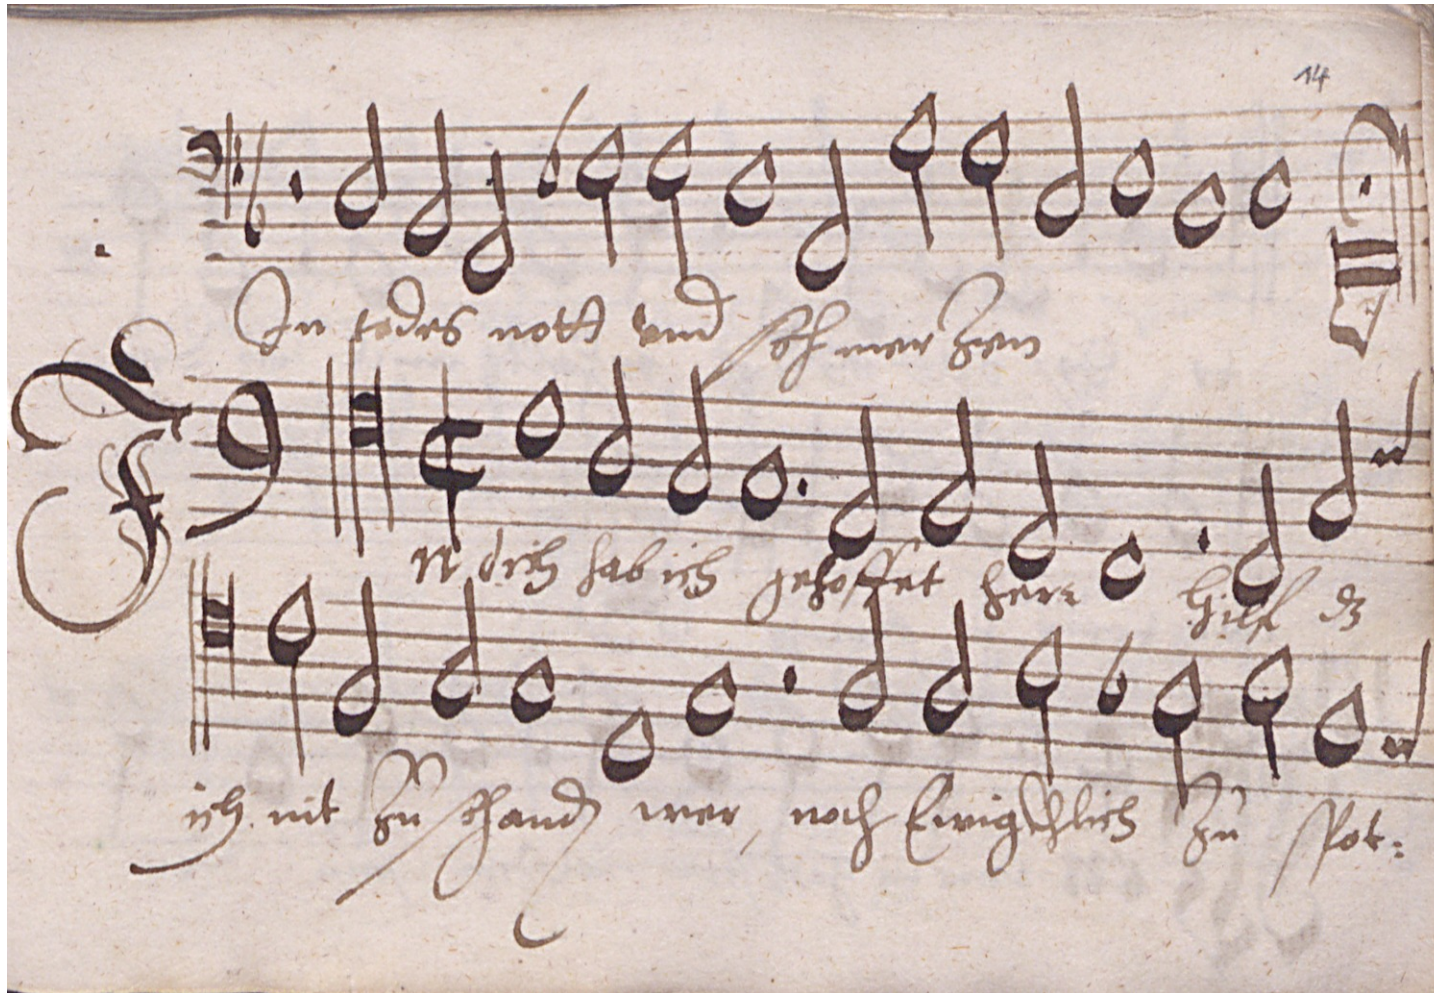 14
In todes nott und schmerzen
In dich hab ich gehoffet herr hilf dz
ich nit zu schand wer, noch Ewigchlich zu spot: